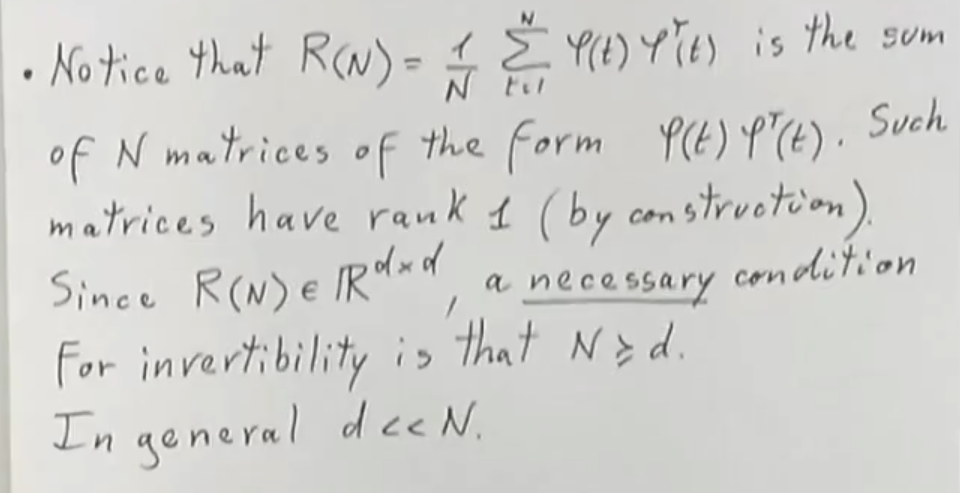 • Notice that R(N) = 1/N ∑_{t=1}^{N} φ(t) φᵀ(t) is the sum
of N matrices of the form φ(t) φᵀ(t). Such
matrices have rank 1 (by construction).
Since R(N) ∈ ℝ^{d×d}, a necessary condition
for invertibility is that N ≥ d.
In general d << N.